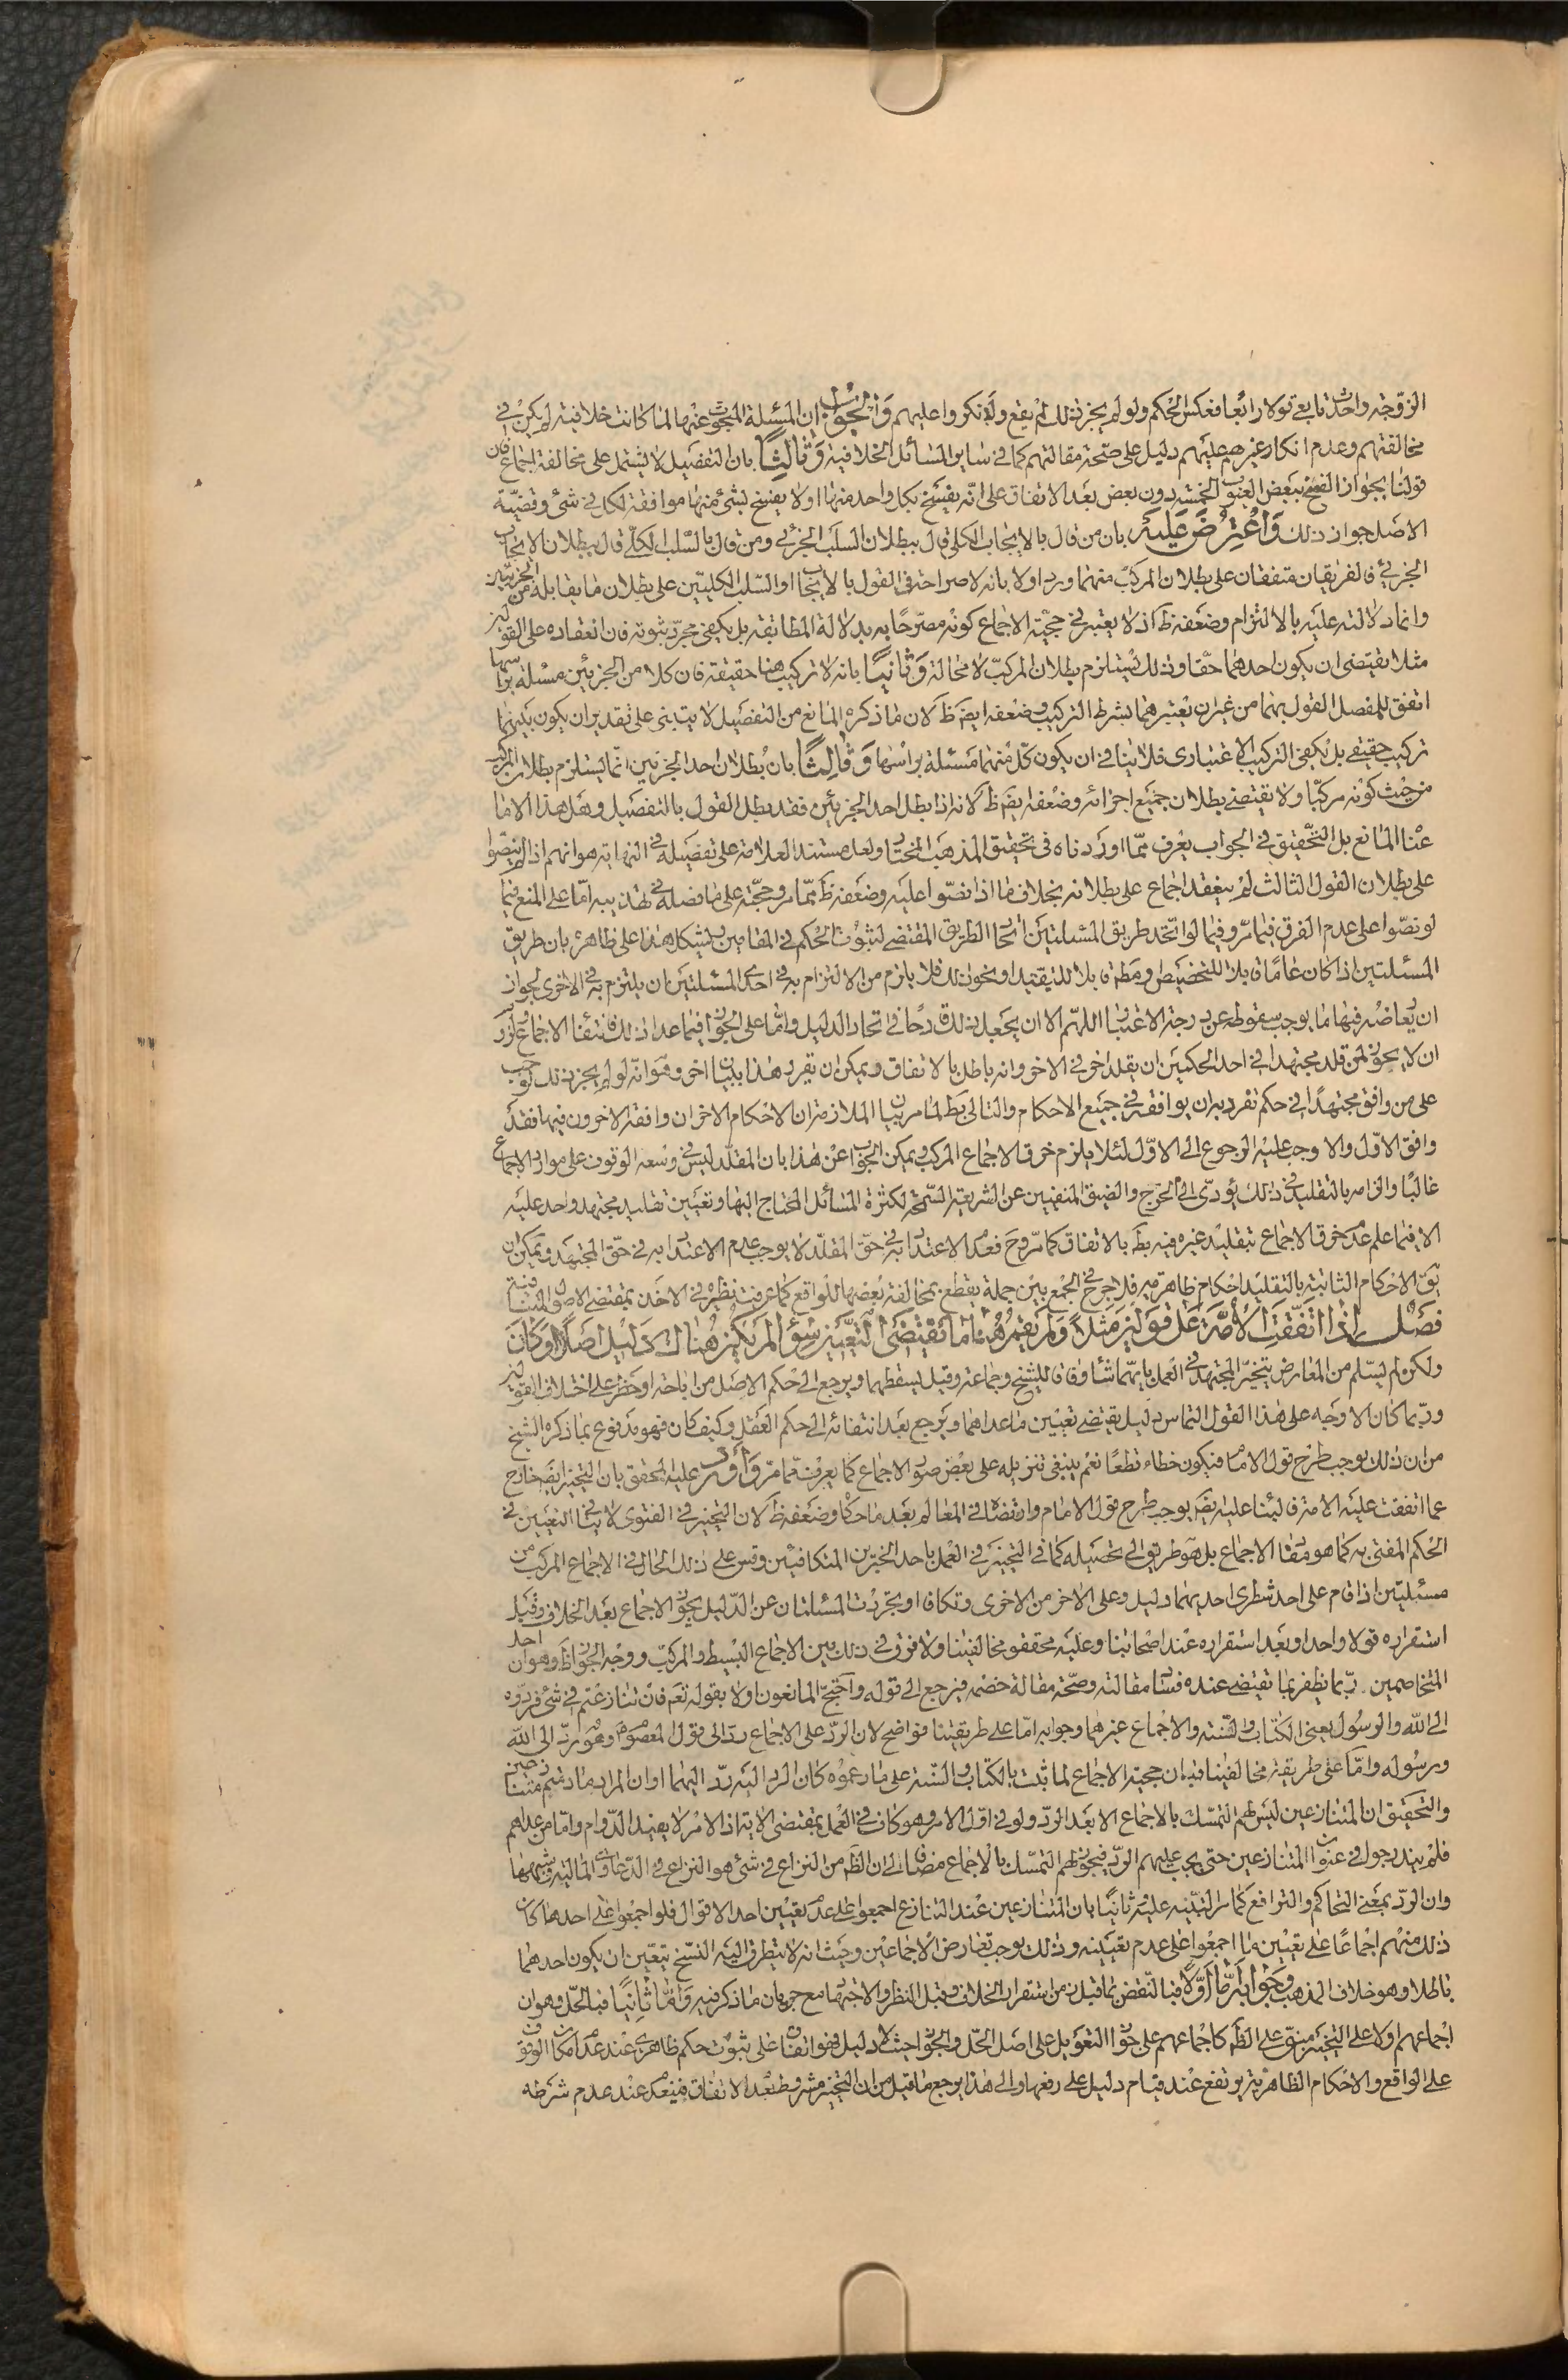 الزوجة واحدث تابعي قولا رابعا فعكس الحكم ولو لم يجز ذلك لم يقع ولأنكروا عليهم والجواب ان المسئلة المبحوث عنها لما كانت خلافية لم يكن في
مخالفتهم وعدم انكار غيرهم عليهم دليل على صحة مقالتهم كما في ساير المسائل الخلافية وثالثا بان التفصيل لا يشتمل على مخالفة اجماع فان
قولنا بجواز الفسخ ببعض العيوب الخمسة دون بعض بعد الاتفاق على انه يفسخ بكل واحد منها او لا يفسخ بشئ منها موافقة لكل في شئ وقضية
الاصل جواز ذلك واعترض عليه بان من قال بالايجاب الكلي قال ببطلان السلب الجزئي ومن قال بالسلب الكلي قال ببطلان الايجاب
الجزئي فالفريقان متفقان على بطلان المركب منهما ورد اولا بانه لا صراحة في القول بالايجاب او السلب الكليين على بطلان ما يقابله من الجزئيين
وانما دلالته عليه بالالتزام وضعفه ظ اذ لا يعتبر في حجية الاجماع كونه مصرحا به بدلالة المطابقة بل يكفي مجرد ثبوته فان انعقاده على القولين
مثلا يقتضى ان يكون احدهما حقا وذلك يستلزم بطلان المركب لا محالة وثانيا بانه لا تركيب هنا حقيقة فان كلا من الجزئين مسئلة براسها
اتفق للمفصل القول بهما من غير ان يعتبرهما بشرط التركيب وضعفه ايضا ظ لان ما ذكره المانع من التفصيل لا يبتنى على تقدير ان يكون بينهما
تركيب حقيقي بل يكفي التركيب الاعتبارى فلا ينافى ان يكون كل منهما مسئلة براسها وثالثا بان بطلان احد الجزئين انما يستلزم بطلان المركب
من حيث كونه مركبا ولا يقتضي بطلان جميع اجزائه وضعفه ايضا ظ لانه اذا بطل احد الجزئين فقد بطل القول بالتفصيل وهل هذا الا ما
عناه المانع بل التحقيق في الجواب يعرف مما اوردناه فى تحقيق المذهب المختار ولعل مستند العلامة على تفصيله في النهاية هو انهم اذا لم ينصوا
على بطلان القول الثالث لم ينعقد اجماع على بطلانه بخلاف ما اذا نصوا عليه وضعفه ظ مما مر وحجته على ما فصله في تهذيبه اما على المنع فيما
لو نصوا على عدم الفرق فيما مر وفيما لو اتحد طريق المسئلتين اتحاد الطريق المقتضى لثبوت الحكم في المقامين ويشكل هذا على ظاهره بان طريق
المسئلتين اذا كان عاما قابلا للتخصيص او مطلقا قابلا للتقييد او نحو ذلك فلا يلزم من الالتزام به في احدى المسئلتين ان يلتزم به في الاخرى لجواز
ان يعارضه فيها ما يوجب سقوطه عن درجة الاعتبار اللهم الا ان يجعل ذلك قدحا في اتحاد الدليل واما على الجواز فيما عدا ذلك فانتفاء الاجماع ولزوم
ان لا يجوز لمن قلد مجتهدا في احد الحكمين ان يقلد اخر في الاخر وانه باطل بالاتفاق ويمكن ان يقرر هذا ببيان اخر وهو انه لو لم يجز ذلك لوجب
على من وافق مجتهدا في حكم تفرد به ان يوافقه في جميع الاحكام والتالى بط لما مر بيان الملازمة ان الاحكام الاخر ان وافقه الاخرون فيها فقد
وافق الاول والا وجب عليه الرجوع الى الاول لئلا يلزم خرق الاجماع المركب ويمكن الجواب عن هذا بان المقلد ليس في وسعه الوقوف على موارد الاجماع
غالبا والزامه بالتقليد في ذلك يؤدى الى الحرج والضيق المنفيين عن الشريعة السمحة لكثرة المسائل المحتاج اليها وتعيين تقليد مجتهد واحد عليه
الا فيما علم عدم خرق الاجماع بتقليد غيره فيه بط بالاتفاق كما مر وح فعدم الاعتداد به في حق المقلد لا يوجب عدم الاعتداد به في حق المجتهد ويمكن ان
يقال الاحكام الثابتة بالتقليد احكام ظاهرية فلا حرج في الجمع بين جملة يقطع بمخالفة بعضها للواقع كما عرفت نظيره في الاخذ بمقتضى الاصول المتنافية
فصل اذا اتفقت الامة على قولين مثلا ولم يقم هناك ما يقتضى التعيين سواء لم يكن هناك دليل اصلا او كان
ولكن لم يسلم من المعارض يتخير المجتهد في العمل بايهما شاء وفاقا للشيخ وجماعة وقيل يسقطهما ويرجع الى حكم الاصل من اباحة او حظر على اختلاف القولين
وربما كان الاوجه على هذا القول التماس دليل يقتضى تعيين ما عداهما ويرجع بعد انتفائه الى حكم العقل وكيف كان فهو مدفوع بما ذكره الشيخ
من ان ذلك يوجب طرح قول الامام فيكون خطاء قطعا نعم ينبغى تنزيله على بعض صور الاجماع كما يعرف مما مر واورد عليه المحقق بان التخيير ايضا خارج
عما اتفقت عليه الامة فالبناء عليه ايضا يوجب طرح قول الامام وارتضاه في المعالم بعد ما حكاه وضعفه ظ لان التخيير في الفتوى لا ينافى التعيين في
الحكم المفتى به كما هو مفاد الاجماع بل هو طريق الى تحصيله كما في التخيير في العمل باحد الخبرين المتكافئين وقس على ذلك الحال في الاجماع المركب من
مسئلتين اذا قام على احد شطرى احديهما دليل وعلى الاخر من الاخرى وتكافئا او تجردت المسئلتان عن الدليل يجوز الاجماع بعد الخلاف وقبل
استقراره قولا واحدا وبعد استقراره عند اصحابنا وعليه محققو مخالفينا ولا فرق في ذلك بين الاجماع البسيط والمركب ووجه الجواز ظ وهو ان احد
المتخاصمين ربما يظفر بما يقتضى عنده فساد مقالته وصحة مقالة خصمه فيرجع الى قوله واحتج المانعون اولا بقوله تعم فان تنازعتم في شئ فردوه
الى الله والرسول يعنى الكتاب والسنة والاجماع غيرهما وجوابه اما على طريقتنا فواضح لان الرد على الاجماع رد الى قول المعصوم وهو رد الى الله
ورسوله واما على طريقة مخالفينا فبان حجية الاجماع لما ثبت بالكتاب والسنة على ما زعموه كان الرد اليه رد اليهما او ان المراد ما دمتم متنازعين
والتحقيق ان المتنازعين ليس لهم التمسك بالاجماع الا بعد الرد ولو في اول الامر وهو كاف في العمل بمقتضى الاية اذ الامر لا يفيد الدوام واما من عداهم
فلم يندرجوا في عنوان المتنازعين حتى يجب عليهم الرد فيجوز لهم التمسك بالاجماع مضافا الى ان الظ من النزاع في شئ هو النزاع في الدعاوى المالية وشبهها
وان الرد بمعنى التحاكم والترافع كما مر التنبيه عليه وثانيا بان المتنازعين عند التنازع اجمعوا على عدم تعيين احد الاقوال فلو اجمعوا على احدها كان
ذلك منهم اجماعا على تعيين ما اجمعوا على عدم تعيينه وذلك يوجب تعارض الاجماعين وحيث انه لا يتطرق اليه النسخ تعين ان يكون احدهما
باطلا وهو خلاف المذهب وجوابه اما اولا فبالنقض بما قبل زمن استقرار الخلاف وقبل النظر والاجتهاد مع جريان ما ذكر فيه واما ثانيا فبالحل وهو ان
اجماعهم اولا على التخيير مبنى على الظ كاجماعهم على جواز التعويل على اصل الحل والجواز حيث لا دليل فهو اتفاق على ثبوت حكم ظاهرى عند عدم امكان الوقوف
على الواقع والاحكام الظاهرية يرتفع عند قيام دليل على رفعها والى هذا يرجع ما قيل من ان التخيير مشروط بعدم الاتفاق فينعدم عند عدم شرطه